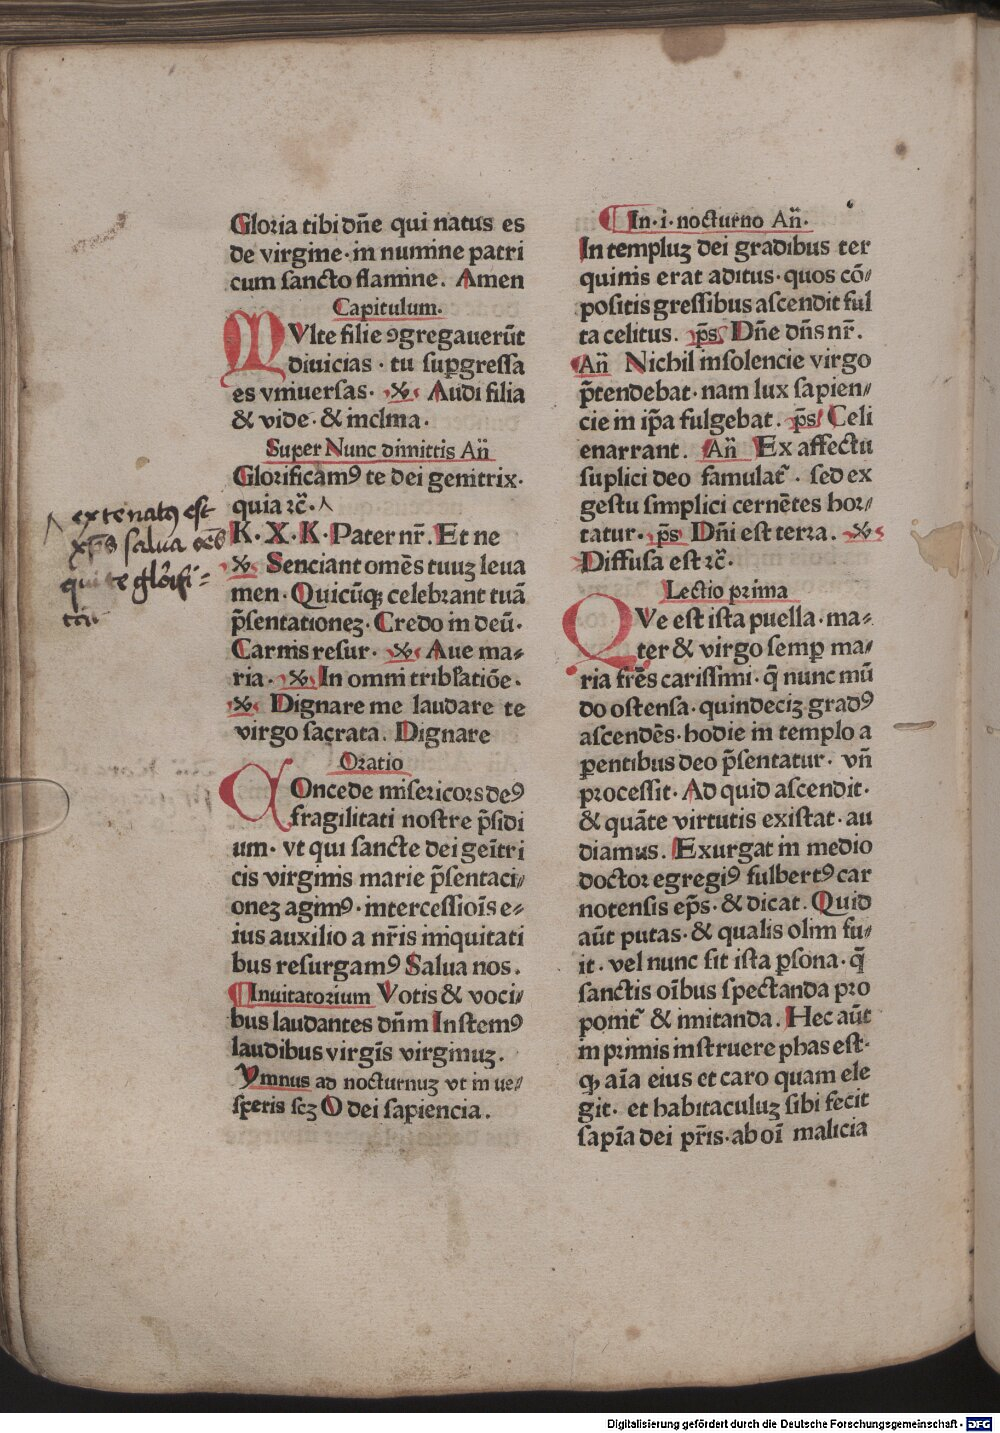 Gloria tibi dn̄e qui natus es
de virgine · in numine patri
cum sancto flamine. Amen
Capitulum.
MVlte filie ꝯgregauerūt
diuicias · tu suꝑgressa
es vniuersas. ℣ Audi filia
& vide · & inclina ·
Super Nunc dimittis An̄
Glorificamꝰ te dei genitrix ·
quia ⁊c̄ · ^
^ ex te natꝰ est
xp̄s salua oēs
qui te glōrifi-
cāt
K · X · K · Pater nr̄. Et ne
℣ Senciant omēs tuuꝫ leua
men. Quicūqꝫ celebrant tuā
p̄sentationeꝫ. Credo in deū.
Carnis resur. ℣ Aue ma⸗
ria. ℣ In omni tribłatiōe.
℣ Dignare me laudare te
virgo sacrata. Dignare
Oratio
COncede misericors deꝰ
fragilitati nostre p̄sidi
um · vt qui sancte dei geīt̄ri
cis virginis marie p̄sentaci⸗
oneꝫ agimꝰ · intercessiōis e⸗
ius auxilio a nr̄is iniquitati
bus resurgamꝰ Salua nos.
¶ Inuitatorium Votis & voci⸗
bus laudantes dn̄m Instemꝰ
laudibus virgīs virginuꝫ.
Ymnus ad nocturnuꝫ vt in ve⸗
speris scꝫ O dei sapiencia.
¶ In · i · nocturno An̄.
In templuꝫ dei gradibus ter
quinis erat aditus · quos cō⸗
positis gressibus ascendit ful
ta celitus. p̄s Dn̄e dn̄s nr̄.
An̄ Nichil insolencie virgo
p̄tendebat · nam lux sapien⸗
cie in ip̄a fulgebat. p̄s Celi
enarrant. An̄ Ex affectu
suplici deo famulat᷑. sed ex
gestu simplici cernētes hor⸗
tatur. p̄s Dn̄i est terra. ℣
Diffusa est ⁊c̄.
Lectio prima
QVe est ista puella · ma⸗
ter & virgo semꝑ ma⸗
ria fr̄es carissimi · q̄ nunc mū
do ostensa · quindeciꝫ gradꝰ
ascendēs · hodie in templo a
ꝑentibus deo p̄sentatur · vn̄
processit. Ad quid ascendit ·
& quāte virtutis existat · au
diamus. Exurgat in medio
doctor egregiꝰ fulbertꝰ car
notensis ep̄s · & dicat. Quid
aūt putas · & qualis olim fu⸗
it · vel nunc sit ista ꝑsona · q̄
sanctis oībus spectanda pro
ponit᷑ & imitanda. Hec aūt
in primis instruere phas est ·
qꝫ aīa eius et caro quam ele
git · et habitaculuꝫ sibi fecit
sapīa dei pr̄is · ab oī malicia
Digitalisierung gefördert durch die Deutsche Forschungsgemeinschaft - DFG